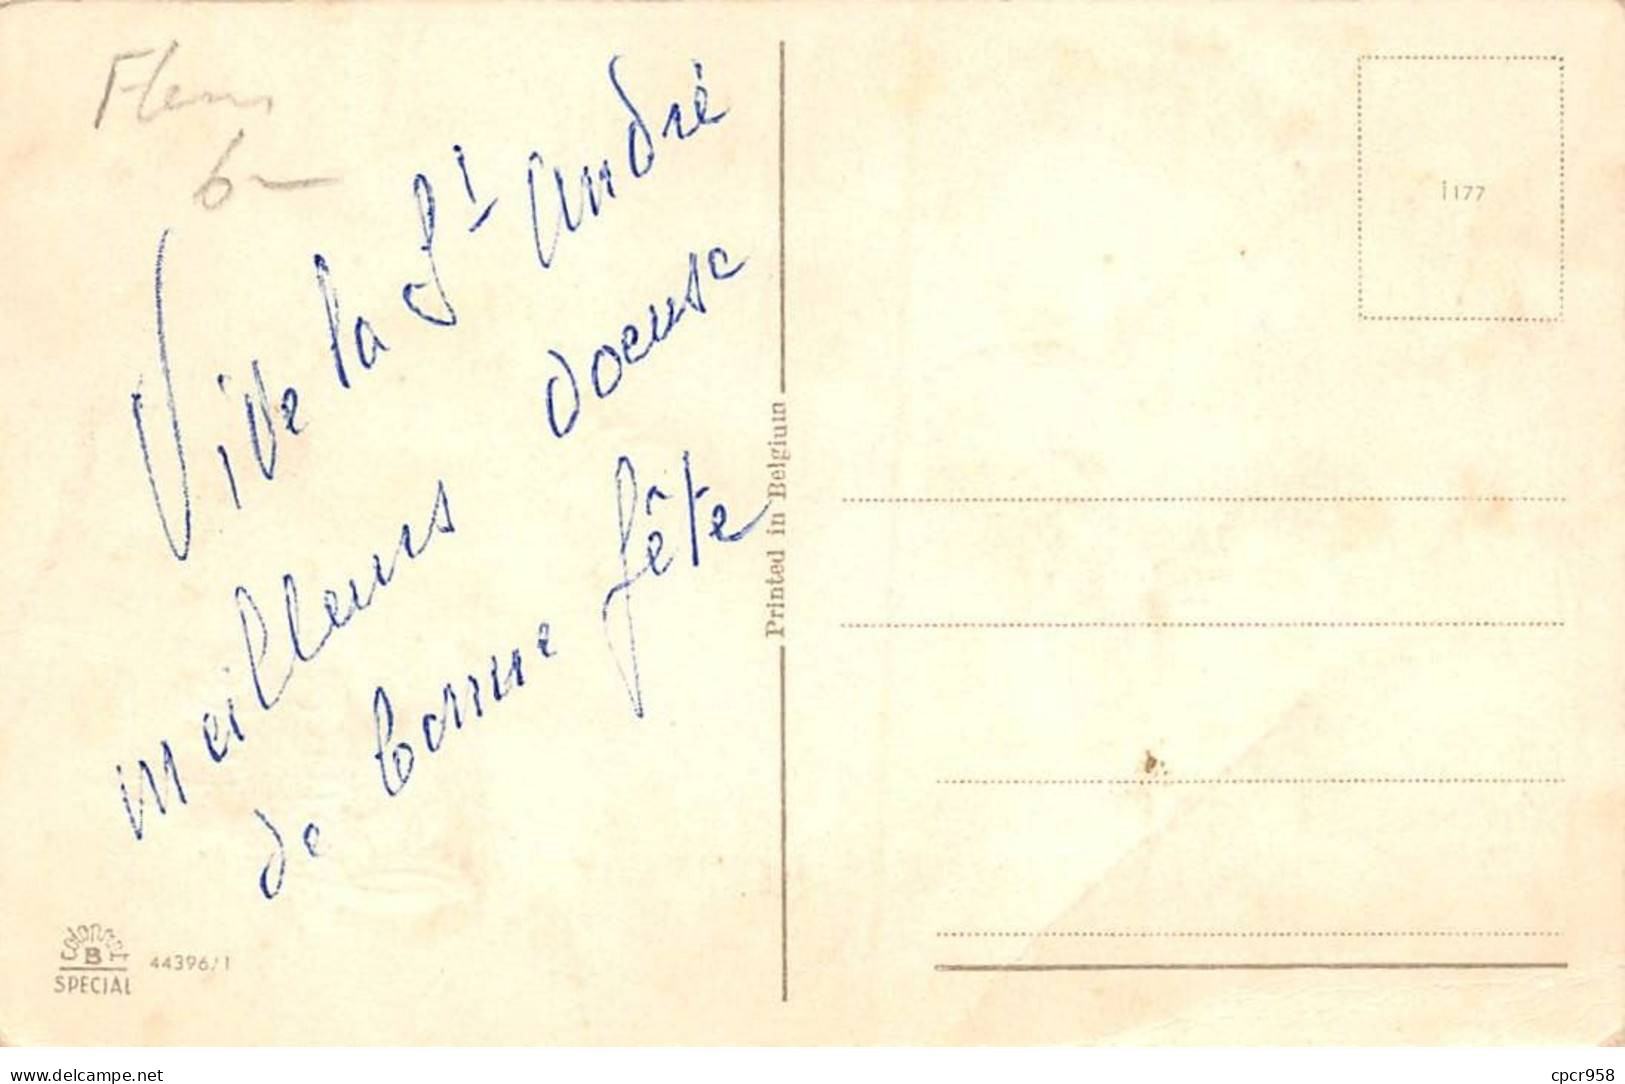 Fleurs
6—
Vive la St André
meilleurs voeux
de bonne fête
Printed in Belgium
1177
COLORPRINT
B
SPECIAL
44396/1
www.delcampe.net
cpcr958